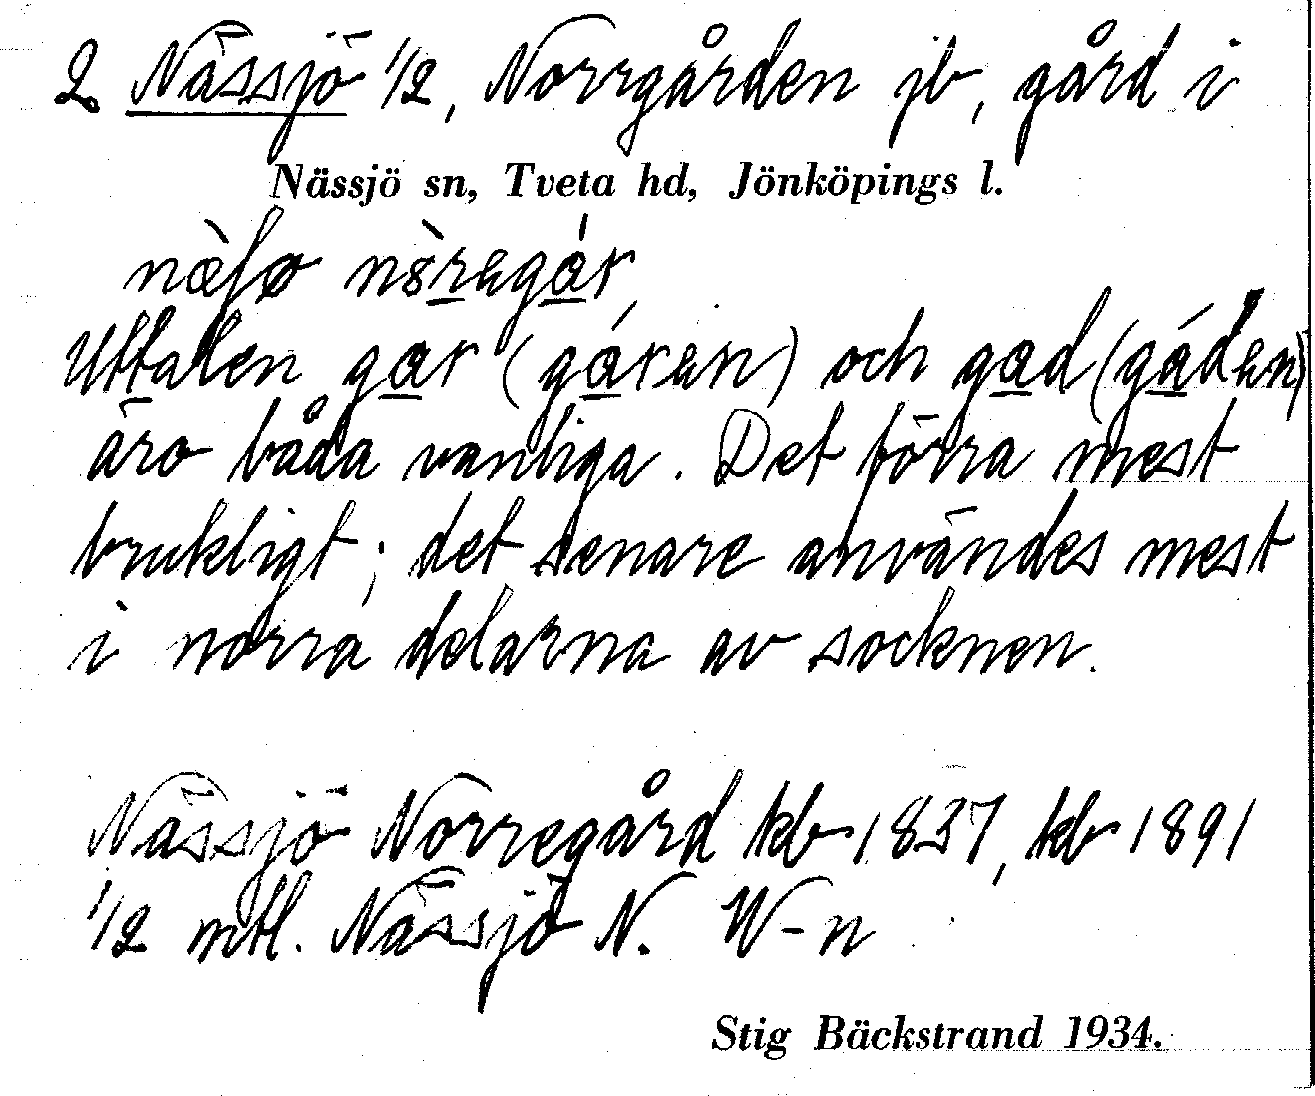 2 Nässjö 1/2, Norrgården jb, gård i
Nässjö sn, Tveta hd, Jönköpings l.
næ̀ʃø nòregár
Uttalen gar (gáren) och gad (gáden)
äro båda vanliga. Det förra mest
brukligt; det senare användes mest
i norra delarna av socknen.
Nässjö Norregård kb 1837, kb 1891
1/2 mtl. Nässjö N. W-n
Stig Bäckstrand 1934.